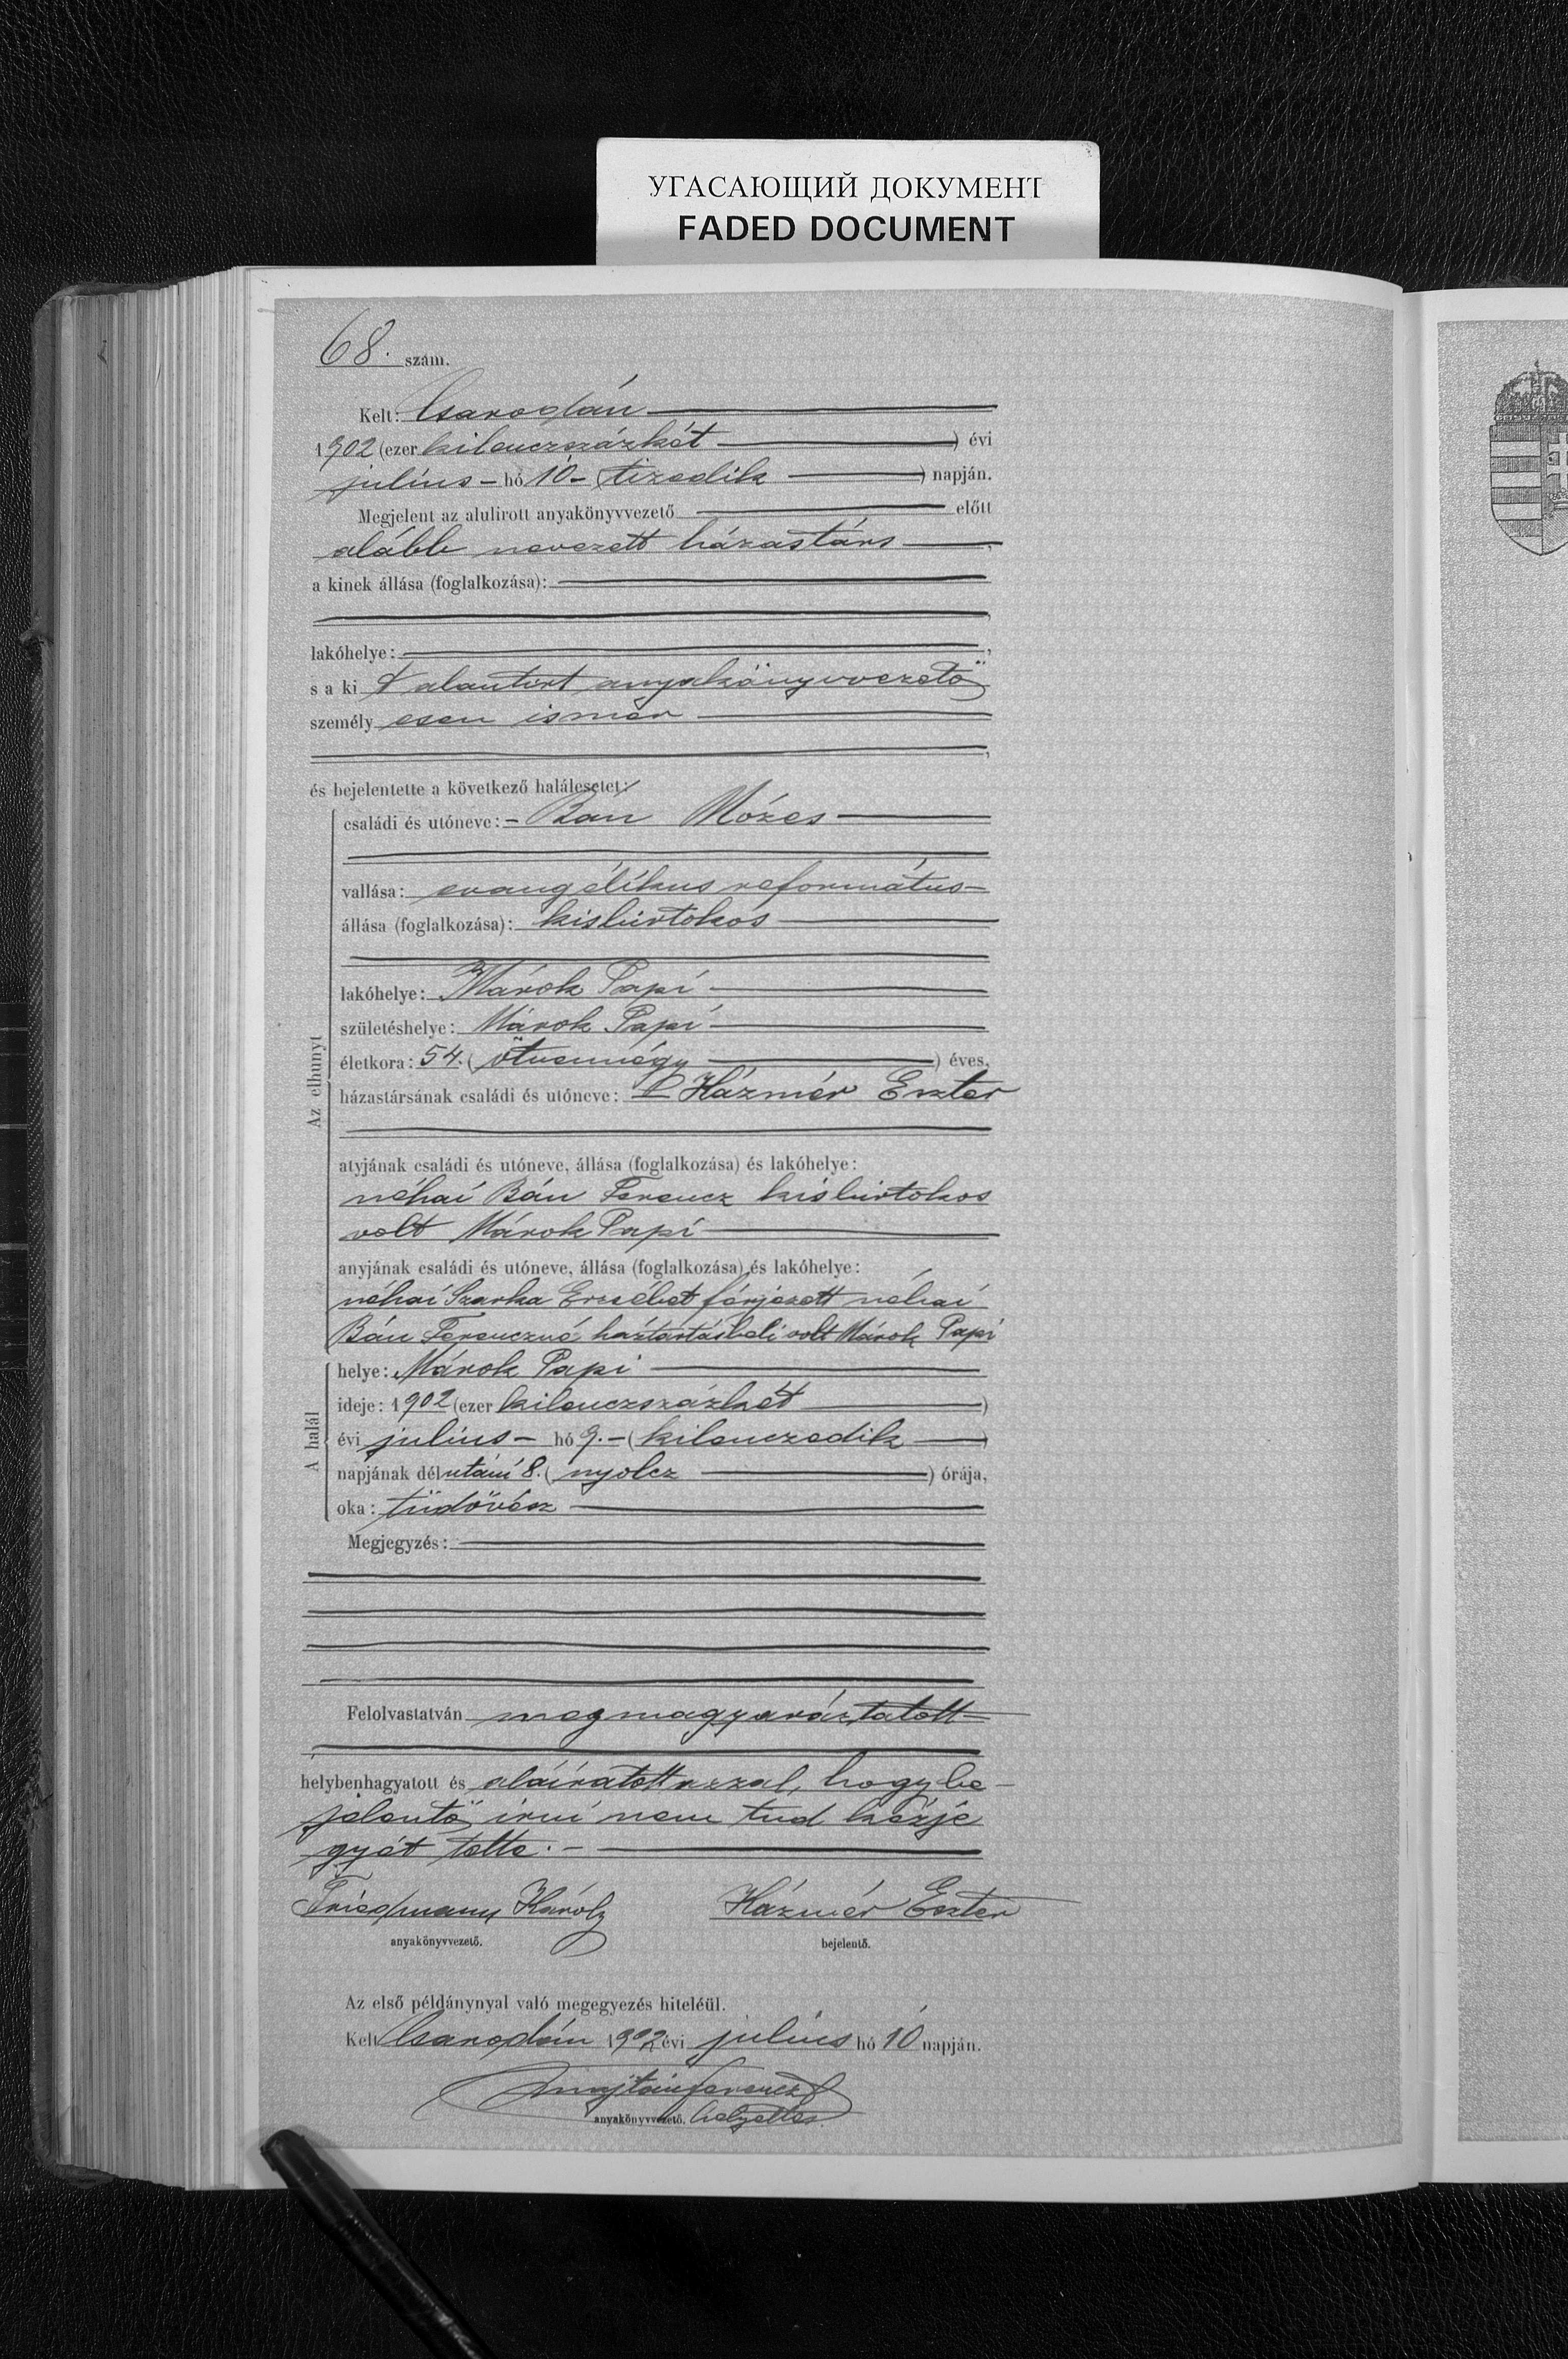 УГАСАЮЩИЙ ДОКУМЕНТ
FADED DOCUMENT
68. szám.
Kelt: Csarodán
1902 (ezer kilenczszázkét) évi
julius - hó 10 - (tizedik) napján.
Megjelent az alulirott anyakönyvvezető előtt
alább nevezett házastárs
a kinek állása (foglalkozása):
lakóhelye:
s a ki alantirt anyakönyvvezető
személy esen ismer
és bejelentette a következő halálesetet:
Az elhunyt
családi és utóneve: - Bán Mózes
vallása: evangélikus református
állása (foglalkozása): kisbirtokos
lakóhelye: Márok Papi
születéshelye: Márok Papi
életkora: 54. (ötvennégy) éves,
házastársának családi és utóneve: Házmér Eszter
atyjának családi és utóneve, állása (foglalkozása) és lakóhelye:
néhai Bán Ferencz kisbirtokos
volt Márok Papi
anyjának családi és utóneve, állása (foglalkozása) és lakóhelye:
néhai Szarka Erzsébet férjezett néhai
Bán Ferenczné háztartásbeli volt Márok Papi
A halál
helye: Márok Papi
ideje: 1902 (ezer kilenczszázkét)
évi julius - hó 9. - (kilenczedik)
napjának délutáni 8. (nyolcz) órája,
oka: tüdővész
Megjegyzés:
Felolvastatván megmagyaráztatott
helybenhagyatott és aláiratott azzal, hogy be-
jelentő irni nem tud kézje
gyét tette. -
Friedmann Károly Házmér Eszter
anyakönyvvezető. bejelentő.
Az első példánynyal való megegyezés hiteléül.
Kelt Csarodán 1902 évi julius hó 10 napján.
Ferencz
anyakönyvvezető. helyettes.